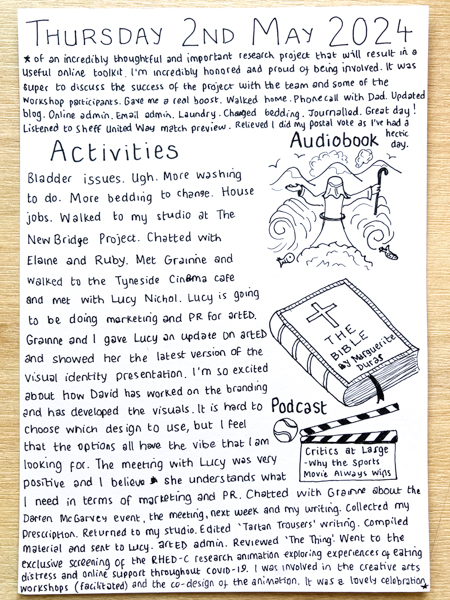 THURSDAY 2ND MAY 2024
* of an incredibly thoughtful and important research project that will result in a
useful online toolkit. I'm incredibly honored and proud of being involved. It was
super to discuss the success of the project with the team and some of the
workshop participants. Gave me a real boost. Walked home. Phonecall with Dad. Updated
blog. Online admin. Email admin. Laundry. Changed bedding. Journalled. Great day!
Listened to Sheff United Way match preview. Relieved I did my postal vote as I've had a
hectic
day.
Activities
Bladder issues. Ugh. More washing
to do. More bedding to change. House
jobs. Walked to my studio at The
NewBridge Project. Chatted with
Elaine and Ruby. Met Grainne and
walked to the Tyneside Cinema cafe
and met with Lucy Nichol. Lucy is going
to be doing marketing and PR for artED.
Grainne and I gave Lucy an update on artED
and showed her the latest version of the
visual identity presentation. I'm so excited
about how David has worked on the branding
and has developed the visuals. It is hard to
choose which design to use, but I feel
that the options all have the vibe that I am
looking for. The meeting with Lucy was very
positive and I believe she understands what
I need in terms of marketing and PR. Chatted with Grainne about the
Darren McGarvey event, the meeting, next week and my writing. Collected my
prescription. Returned to my studio. Edited 'Tartan Trousers' writing. Compiled
material and sent to Lucy. artED admin. Reviewed 'The Thing'. Went to the
exclusive screening of the RHED-C research animation exploring experiences of eating
distress and online support throughout COVID-19. I was involved in the creative arts
workshops (facilitated) and the co-design of the animation. It was a lovely celebration *
Audiobook
THE
BIBLE
By Marguerite
Duras
Podcast
Critics at Large
-Why the Sports
Movie Always Wins